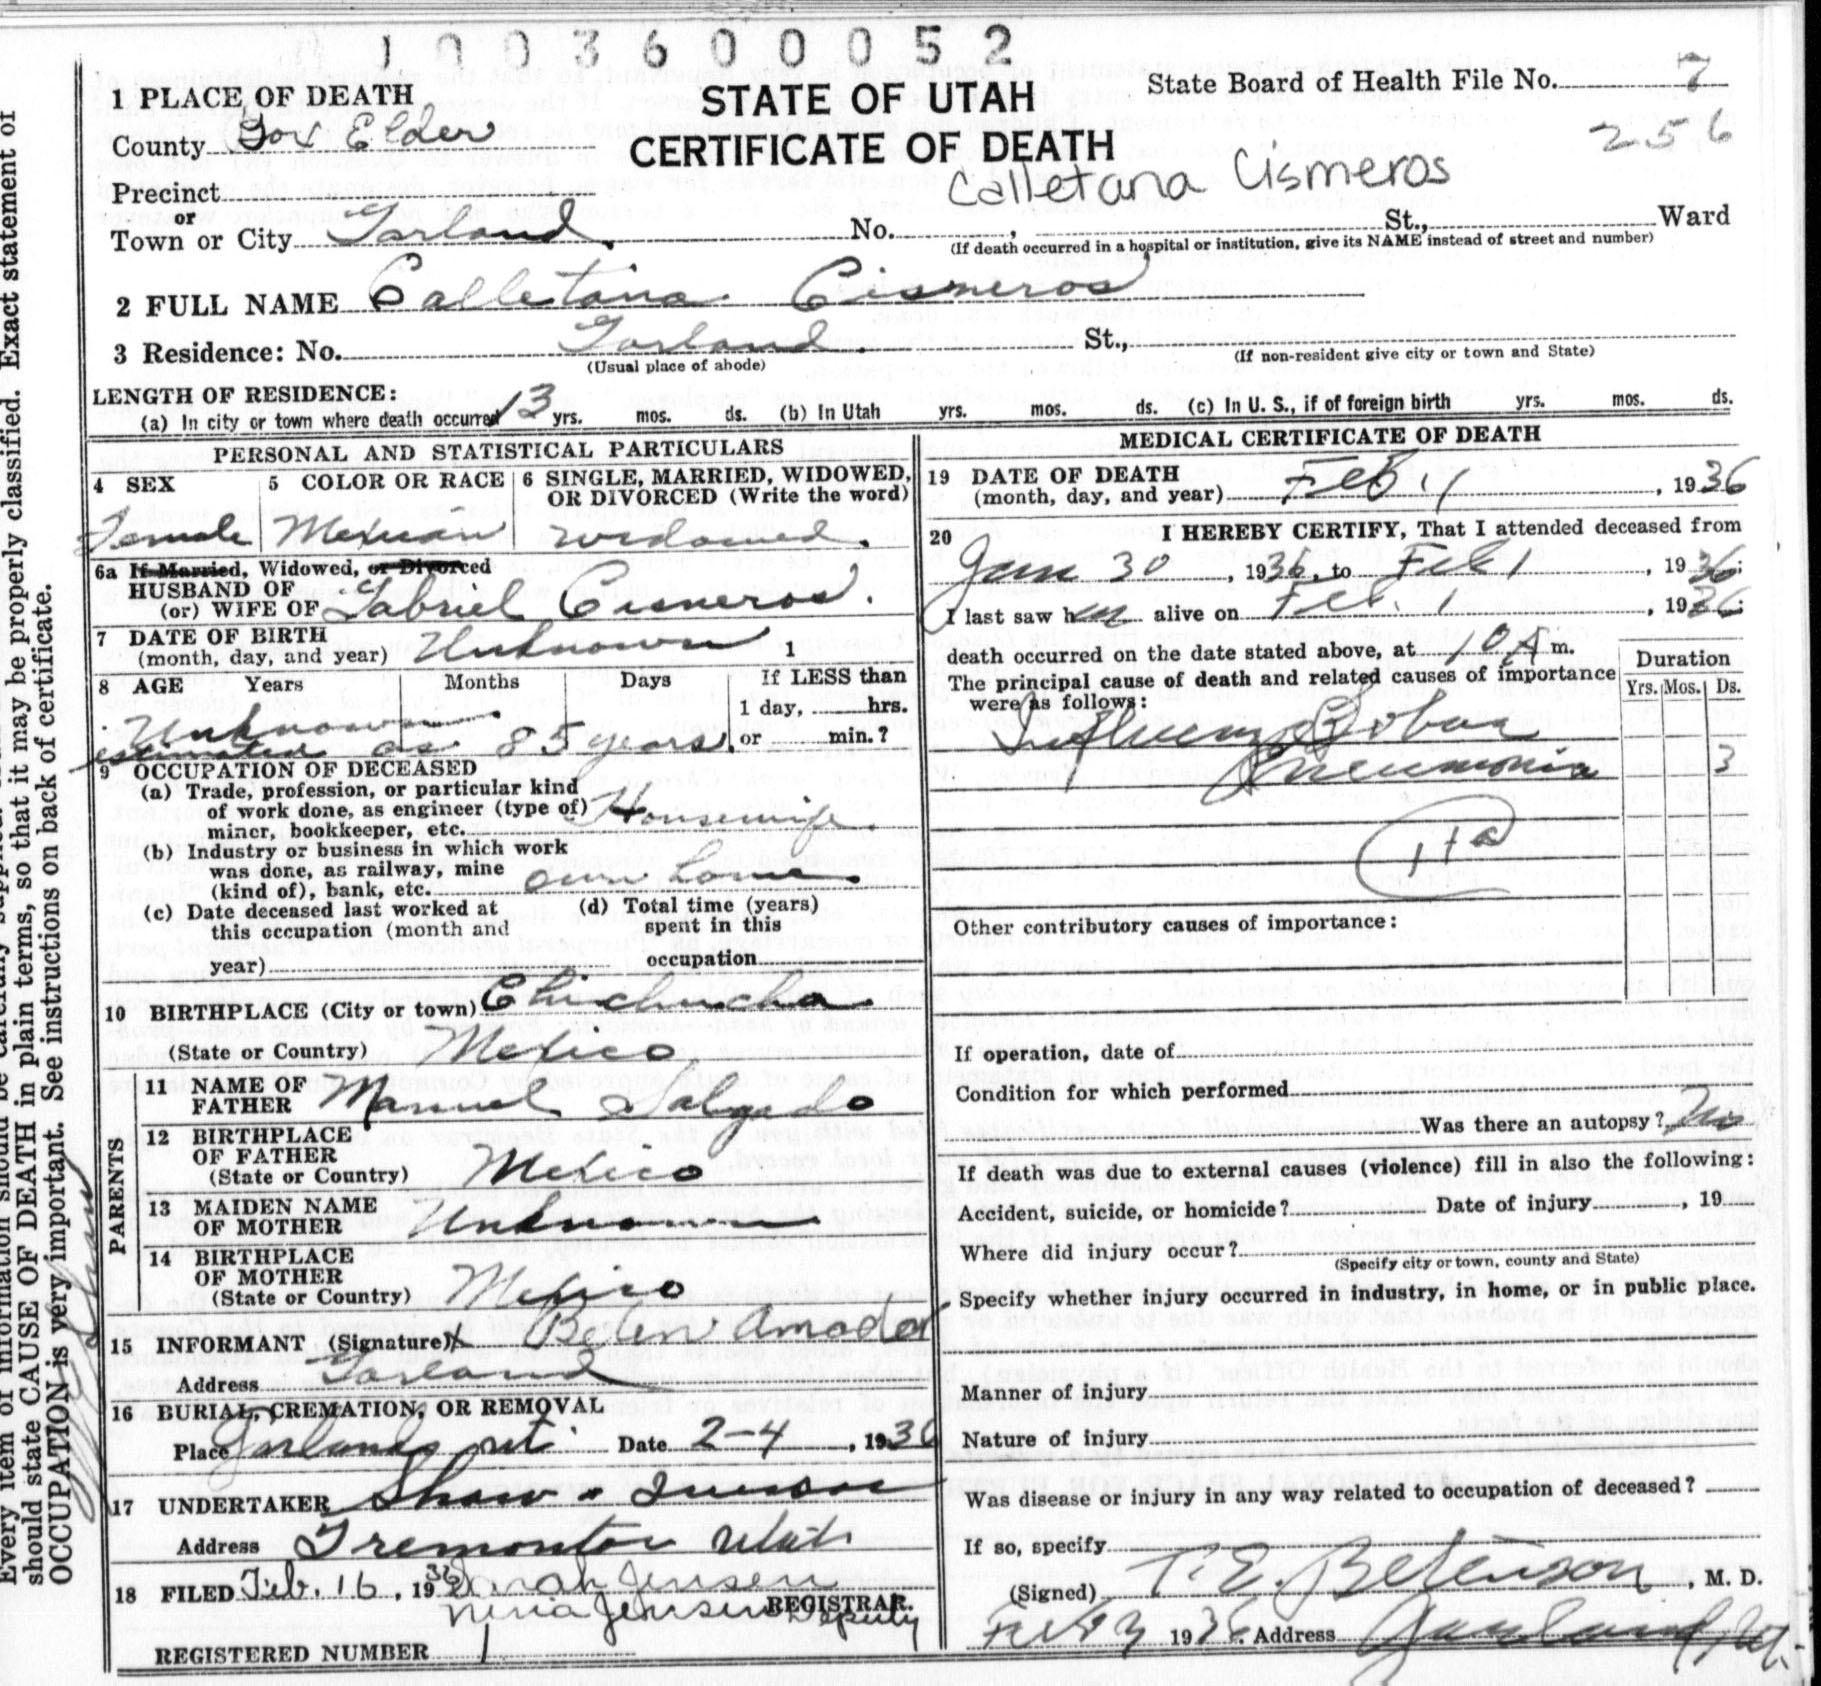 1003600052
State Board of Health File No. 7
256
STATE OF UTAH
CERTIFICATE OF DEATH
Calletana Cismeros
1 PLACE OF DEATH
County Box Elder
Precinct
or
Town or City Garland. No. , St., Ward
(If death occurred in a hospital or institution, give its NAME instead of street and number)
2 FULL NAME Calletana Cisneros
3 Residence: No. Garland. St.,
(Usual place of abode) (If non-resident give city or town and State)
LENGTH OF RESIDENCE:
(a) In city or town where death occurred 13 yrs. mos. ds. (b) In Utah yrs. mos. ds. (c) In U. S., if of foreign birth yrs. mos. ds.
PERSONAL AND STATISTICAL PARTICULARS
4 SEX 5 COLOR OR RACE 6 SINGLE, MARRIED, WIDOWED, OR DIVORCED (Write the word)
Female Mexican widowed.
6a If Married, Widowed, or Divorced
HUSBAND OF
(or) WIFE OF Gabriel Cisneros.
7 DATE OF BIRTH
(month, day, and year) Unknown 1
8 AGE Years Months Days If LESS than
1 day, hrs.
or min.?
Unknown
estimated as 85 years.
9 OCCUPATION OF DECEASED
(a) Trade, profession, or particular kind
of work done, as engineer (type of)
miner, bookkeeper, etc. Housewife.
(b) Industry or business in which work
was done, as railway, mine
(kind of), bank, etc. own home.
(c) Date deceased last worked at
this occupation (month and
year)
(d) Total time (years)
spent in this
occupation
10 BIRTHPLACE (City or town) Chichucha
(State or Country) Mexico
PARENTS
11 NAME OF
FATHER Manuel Salgado
12 BIRTHPLACE
OF FATHER
(State or Country) Mexico
13 MAIDEN NAME
OF MOTHER Unknown
14 BIRTHPLACE
OF MOTHER
(State or Country) Mexico
15 INFORMANT (Signature) x Belen Amador
Address Garland
16 BURIAL, CREMATION, OR REMOVAL
Place Garland, ut. Date 2-4, 1936
17 UNDERTAKER Shaw &
Address Tremonton Utah
18 FILED Feb. 16, 1936 Sarah Jensen
REGISTRAR.
Nina Jensen Deputy
REGISTERED NUMBER 1
MEDICAL CERTIFICATE OF DEATH
19 DATE OF DEATH
(month, day, and year) Feb. 1, 1936
20 I HEREBY CERTIFY, That I attended deceased from
Jan 30, 1936, to Feb 1, 1936;
I last saw her alive on Feb. 1, 1936;
death occurred on the date stated above, at 10 A m.
The principal cause of death and related causes of importance
were as follows:
Duration
Yrs. Mos. Ds.
Influenza Lobar
Pneumonia 3
11a
Other contributory causes of importance:
If operation, date of
Condition for which performed
Was there an autopsy? No
If death was due to external causes (violence) fill in also the following:
Accident, suicide, or homicide? Date of injury , 19
Where did injury occur?
(Specify city or town, county and State)
Specify whether injury occurred in industry, in home, or in public place.
Manner of injury
Nature of injury
Was disease or injury in any way related to occupation of deceased?
If so, specify
(Signed) T. E. Betenson, M. D.
Feb 3 1936. Address Garland, Ut.
should state CAUSE OF DEATH in plain terms, so that it may be properly classified. Exact statement of
OCCUPATION is very important. See instructions on back of certificate.